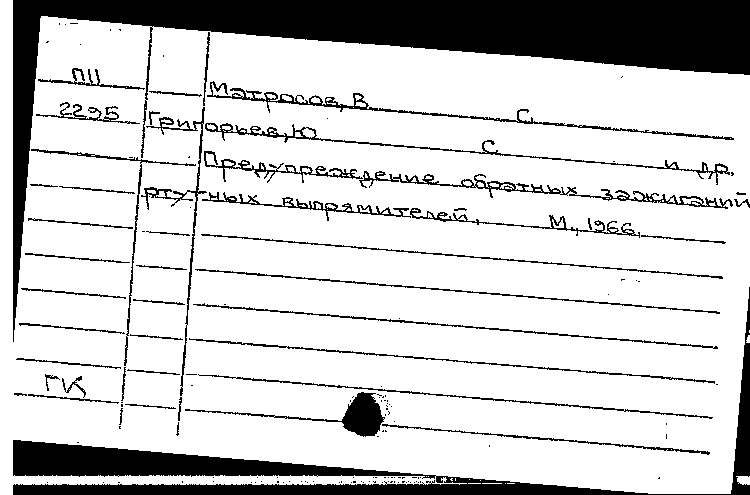 П11 Матросов, В. С.
2295 Григорьев, Ю. С. и др.
Предупреждение обратных зажиганий
ртутных выпрямителей. М., 1966.
ГК